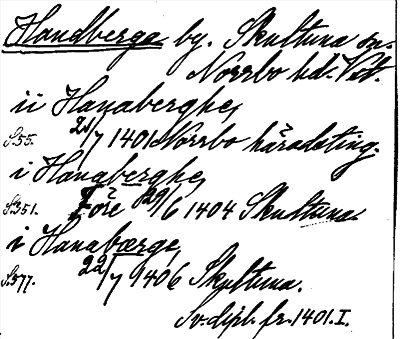 Handberga by. Skultuna sn.
Norrbo hd. Vstm.
ii Hanaberghe,
S.55. 21/7 1401 Norrbo häradsting.
i Hanaberghe,
S.351. Före 29/6 1404 Skultuna.
i Hanabærge,
S.577. 22/7 1406 Skultuna.
Sv. dipl. fr. 1401. I.